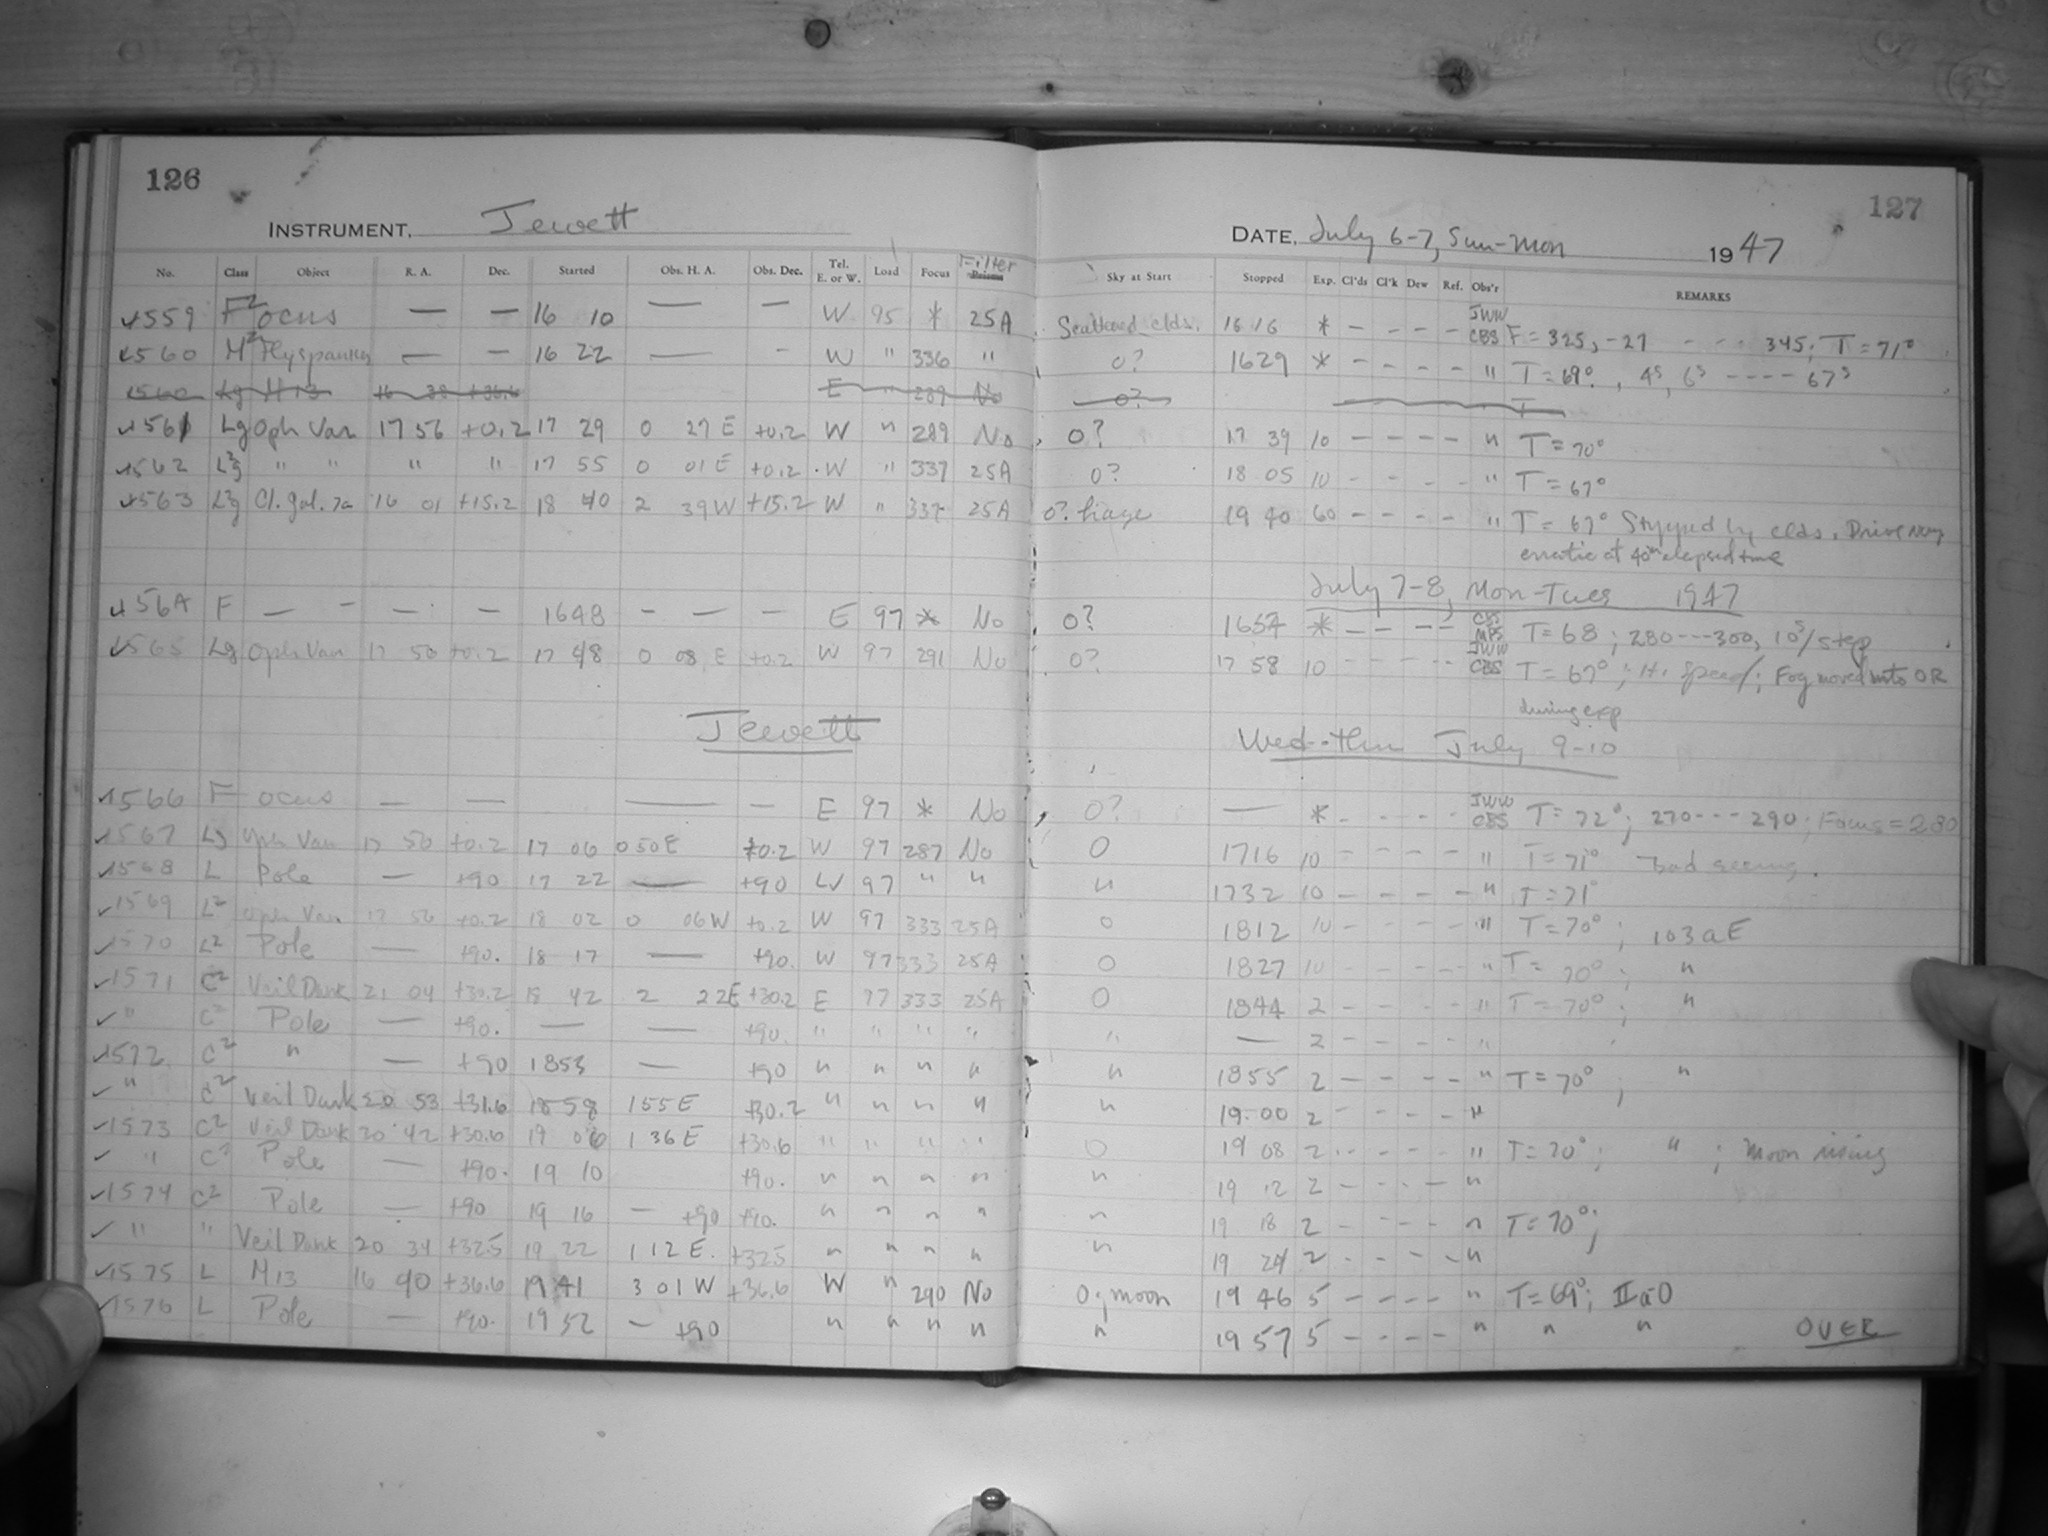 126
127
INSTRUMENT, Jewett
DATE, July 6-7, Sun-Mon 1947
No. Class Object R. A. Dec. Started Obs. H. A. Obs. Dec. Tel. E. or W. Load Focus Filter Prism Sky at Start Stopped Exp. Cl'ds Cl'k Dew Ref. Obs'r REMARKS
1559 F2 ocus — — 16 10 — — W 95 * 25A Scattered clds. 16 16 * – – – – JWW CBS F = 325, -27 - - - 345; T = 71°
1560 M2 — — 16 22 — - W " 336 " 0? 1629 * – – – – " T = 69°, 4s, 6s ---- 67s
1560 Lg M13 16 39 +36.6 E " 289 No 0? T
1561 Lg Oph Var 17 56 +0.2 17 29 0 27 E +0.2 W " 289 No 0? 17 39 10 – – – – " T = 70°
1562 L2g " " " " 17 55 0 01 E +0.2 W " 337 25A 0? 18 05 10 – – – – " T = 67°
1563 L2g Cl. gal. 7a 16 01 +15.2 18 40 2 39 W +15.2 W " 337 25A 0? 19 40 60 – – – – " T = 67° Stopped by clds. Drive very
erratic at 40m elapsed time
July 7-8, Mon-Tues 1947
156A F — - — - — 1648 – — – E 97 * No 0? 1657 * – – – – CBS T = 68 ; 280---300, 10s/step
1565 Lg Oph Var 17 56 +0.2 17 48 0 08 E +0.2 W 97 291 No 0? 17 58 10 – – – – JWW CBS T = 67° ; Hi speed; Fog moved into OR
during exp
Jewett
Wed-thur July 9-10
1566 F ocus — — — — E 97 * No 0? — * – – – – JWW CBS T = 72°; 270---290; Focus = 280
1567 Lg Oph Var 17 56 +0.2 17 06 0 50 E +0.2 W 97 287 No 0 1716 10 – – – – " T = 71° bad seeing.
1568 L Pole — +90 17 22 — +90 W 97 " " " 1732 10 – – – – " T = 71°
1569 L2 Oph Var 17 56 +0.2 18 02 0 06 W +0.2 W 97 333 25A 0 1812 10 – – – – " T = 70° ; 103aE
1570 L2 Pole — +90. 18 17 — +90. W 97 333 25A 0 1827 10 – – – – " T = 70° ; "
1571 C2 Veil Dark 21 04 +30.2 18 42 2 22E +30.2 E 97 333 25A 0 1844 2 – – – – " T = 70° ; "
" C2 Pole — +90. — — +90. " " " " " — 2 – – – – "
1572 C2 " — +90 1853 — +90 " " " " " 1855 2 – – – – " T = 70° ; "
" C2 Veil Dark 20 53 +31.6 1858 1 55 E +30.2 " " " " " 19.00 2 – – – – "
1573 C2 Veil Dark 20 42 +30.6 19 06 1 36 E +30.6 " " " " 0 19 08 2 – – – – " T = 70° ; " ; Moon rising
" C2 Pole — +90. 19 10 +90. " " " " " 19 12 2 – – – – "
1574 C2 Pole — +90 19 16 — +90 +90. " " " " " 19 18 2 – – – – " T = 70° ;
" " Veil Dark 20 34 +32.5 19 22 1 12 E. +32.5 " " " " " 19 24 2 – – – – "
1575 L M13 16 40 +36.6 19 41 3 01 W +36.6 W " 290 No 0; moon 19 46 5 – – – – " T = 69°; IIaO
1576 L Pole — +90. 19 52 — +90 " " " " " 19 57 5 – – – – " " "
OVER